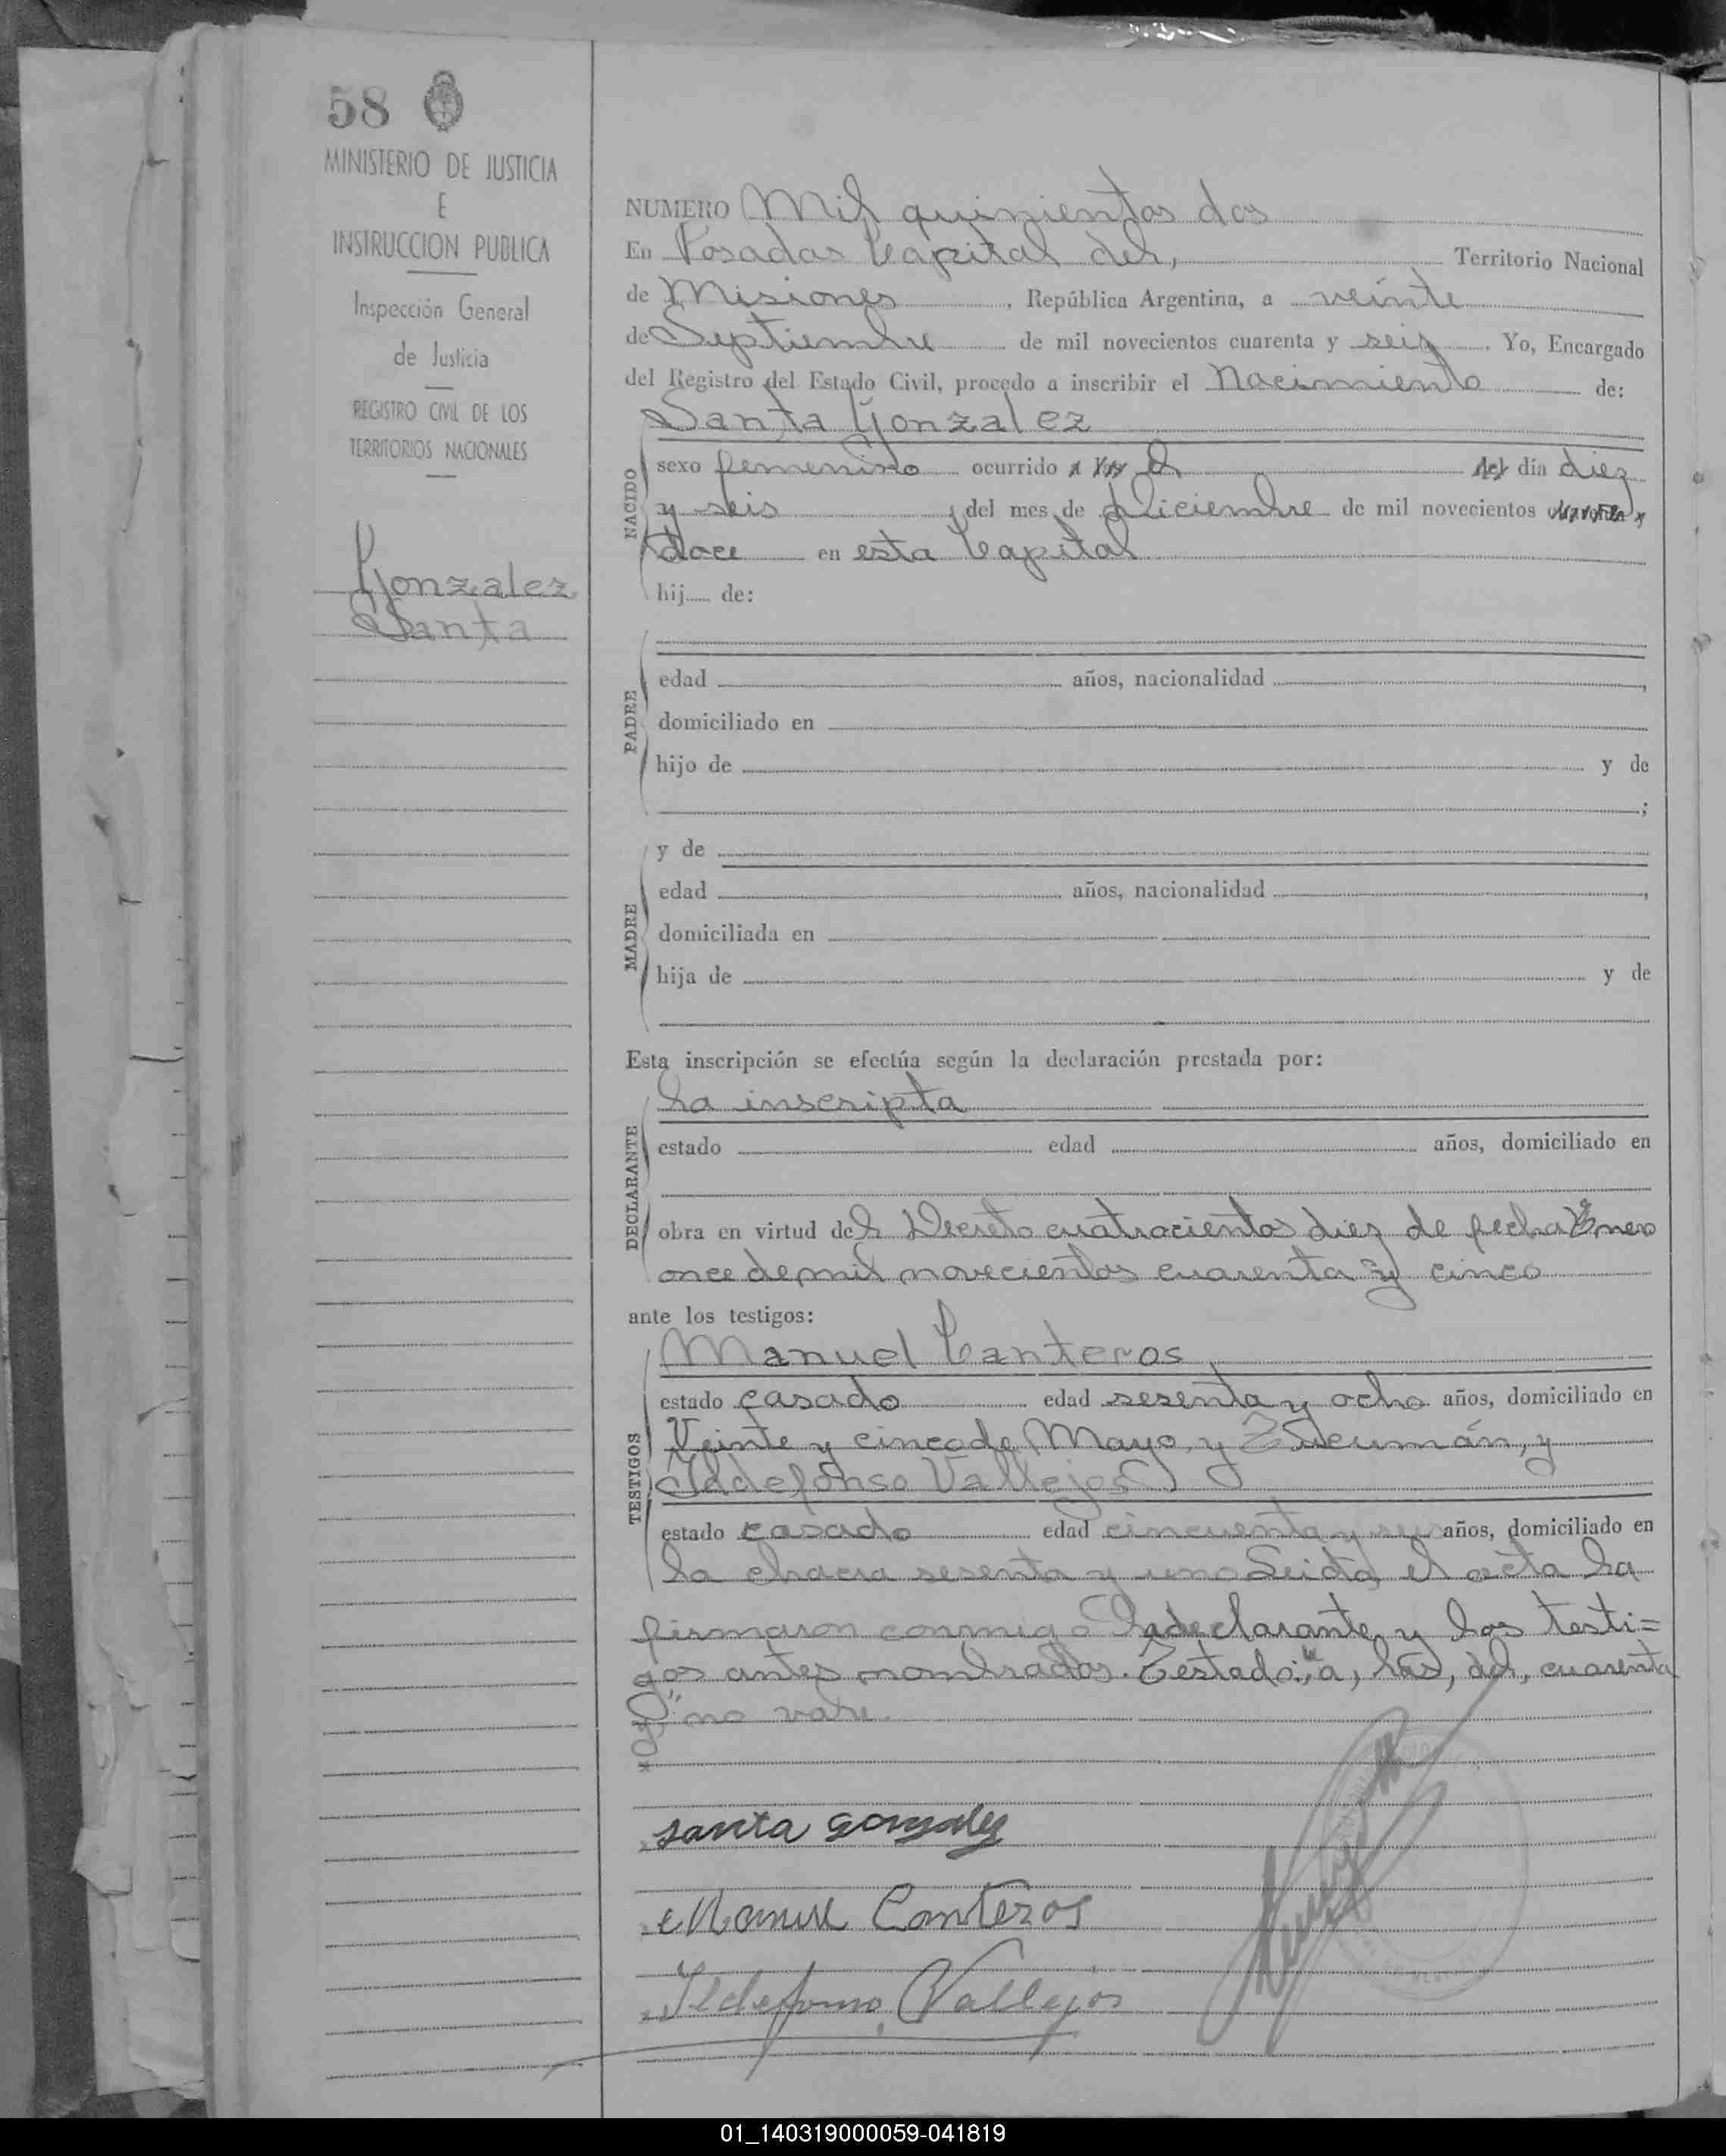 58
MINISTERIO DE JUSTICIA
E
INSTRUCCION PUBLICA
Inspección General
de Justicia
REGISTRO CIVIL DE LOS
TERRITORIOS NACIONALES
Gonzalez
Santa
NUMERO Mil quinientos dos
En Posadas Capital del, Territorio Nacional
de Misiones, República Argentina, a veinte
de Septiembre de mil novecientos cuarenta y seis. Yo, Encargado
del Registro del Estado Civil, procedo a inscribir el Nacimiento de:
Santa Gonzalez
NACIDO
sexo femenino ocurrido a las el del día diez
y seis del mes de Diciembre de mil novecientos cuarenta y
doce en esta Capital
hij de:
PADRE
edad años, nacionalidad ,
domiciliado en
hijo de y de
;
MADRE
y de
edad años, nacionalidad ,
domiciliada en
hija de y de
Esta inscripción se efectúa según la declaración prestada por:
DECLARANTE
La inscripta
estado edad años, domiciliado en
obra en virtud del Decreto cuatrocientos diez de fecha Enero
once de mil novecientos cuarenta y cinco
ante los testigos:
TESTIGOS
Manuel Canteros,
estado casado edad sesenta y ocho años, domiciliado en
Veinte y cinco de Mayo y Tucumán, y
Ildefonso Vallejos
estado casado edad cincuenta y años, domiciliado en
La chacra sesenta y uno Leida el acta la
firmaron conmigo la declarante y los testi=
gos antes nombrados. Testado: "a, las, del, cuarenta
y" no vale.
santa gonzalez
Manuel Canteros
Ildefonso Vallejos
01_140319000059-041819